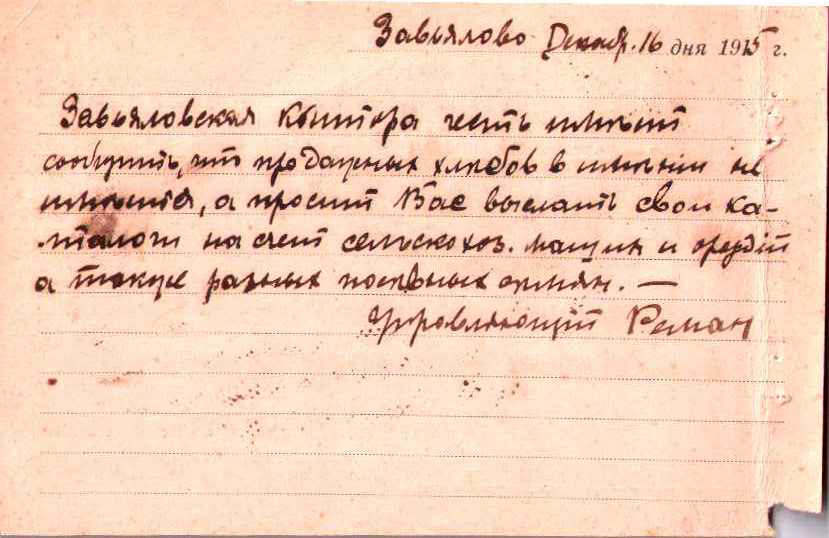 Завьялово Декаб. 16 дня 1915 г.
Завьяловская Контора честь имѣет
сообщить, что продажных хлебов в имѣнии не
имѣется, а просит Вас выслать свои ка-
талоги на счет сельскохоз. машин и орудій
а также разных посѣвных семян. —
Управляющій Роман